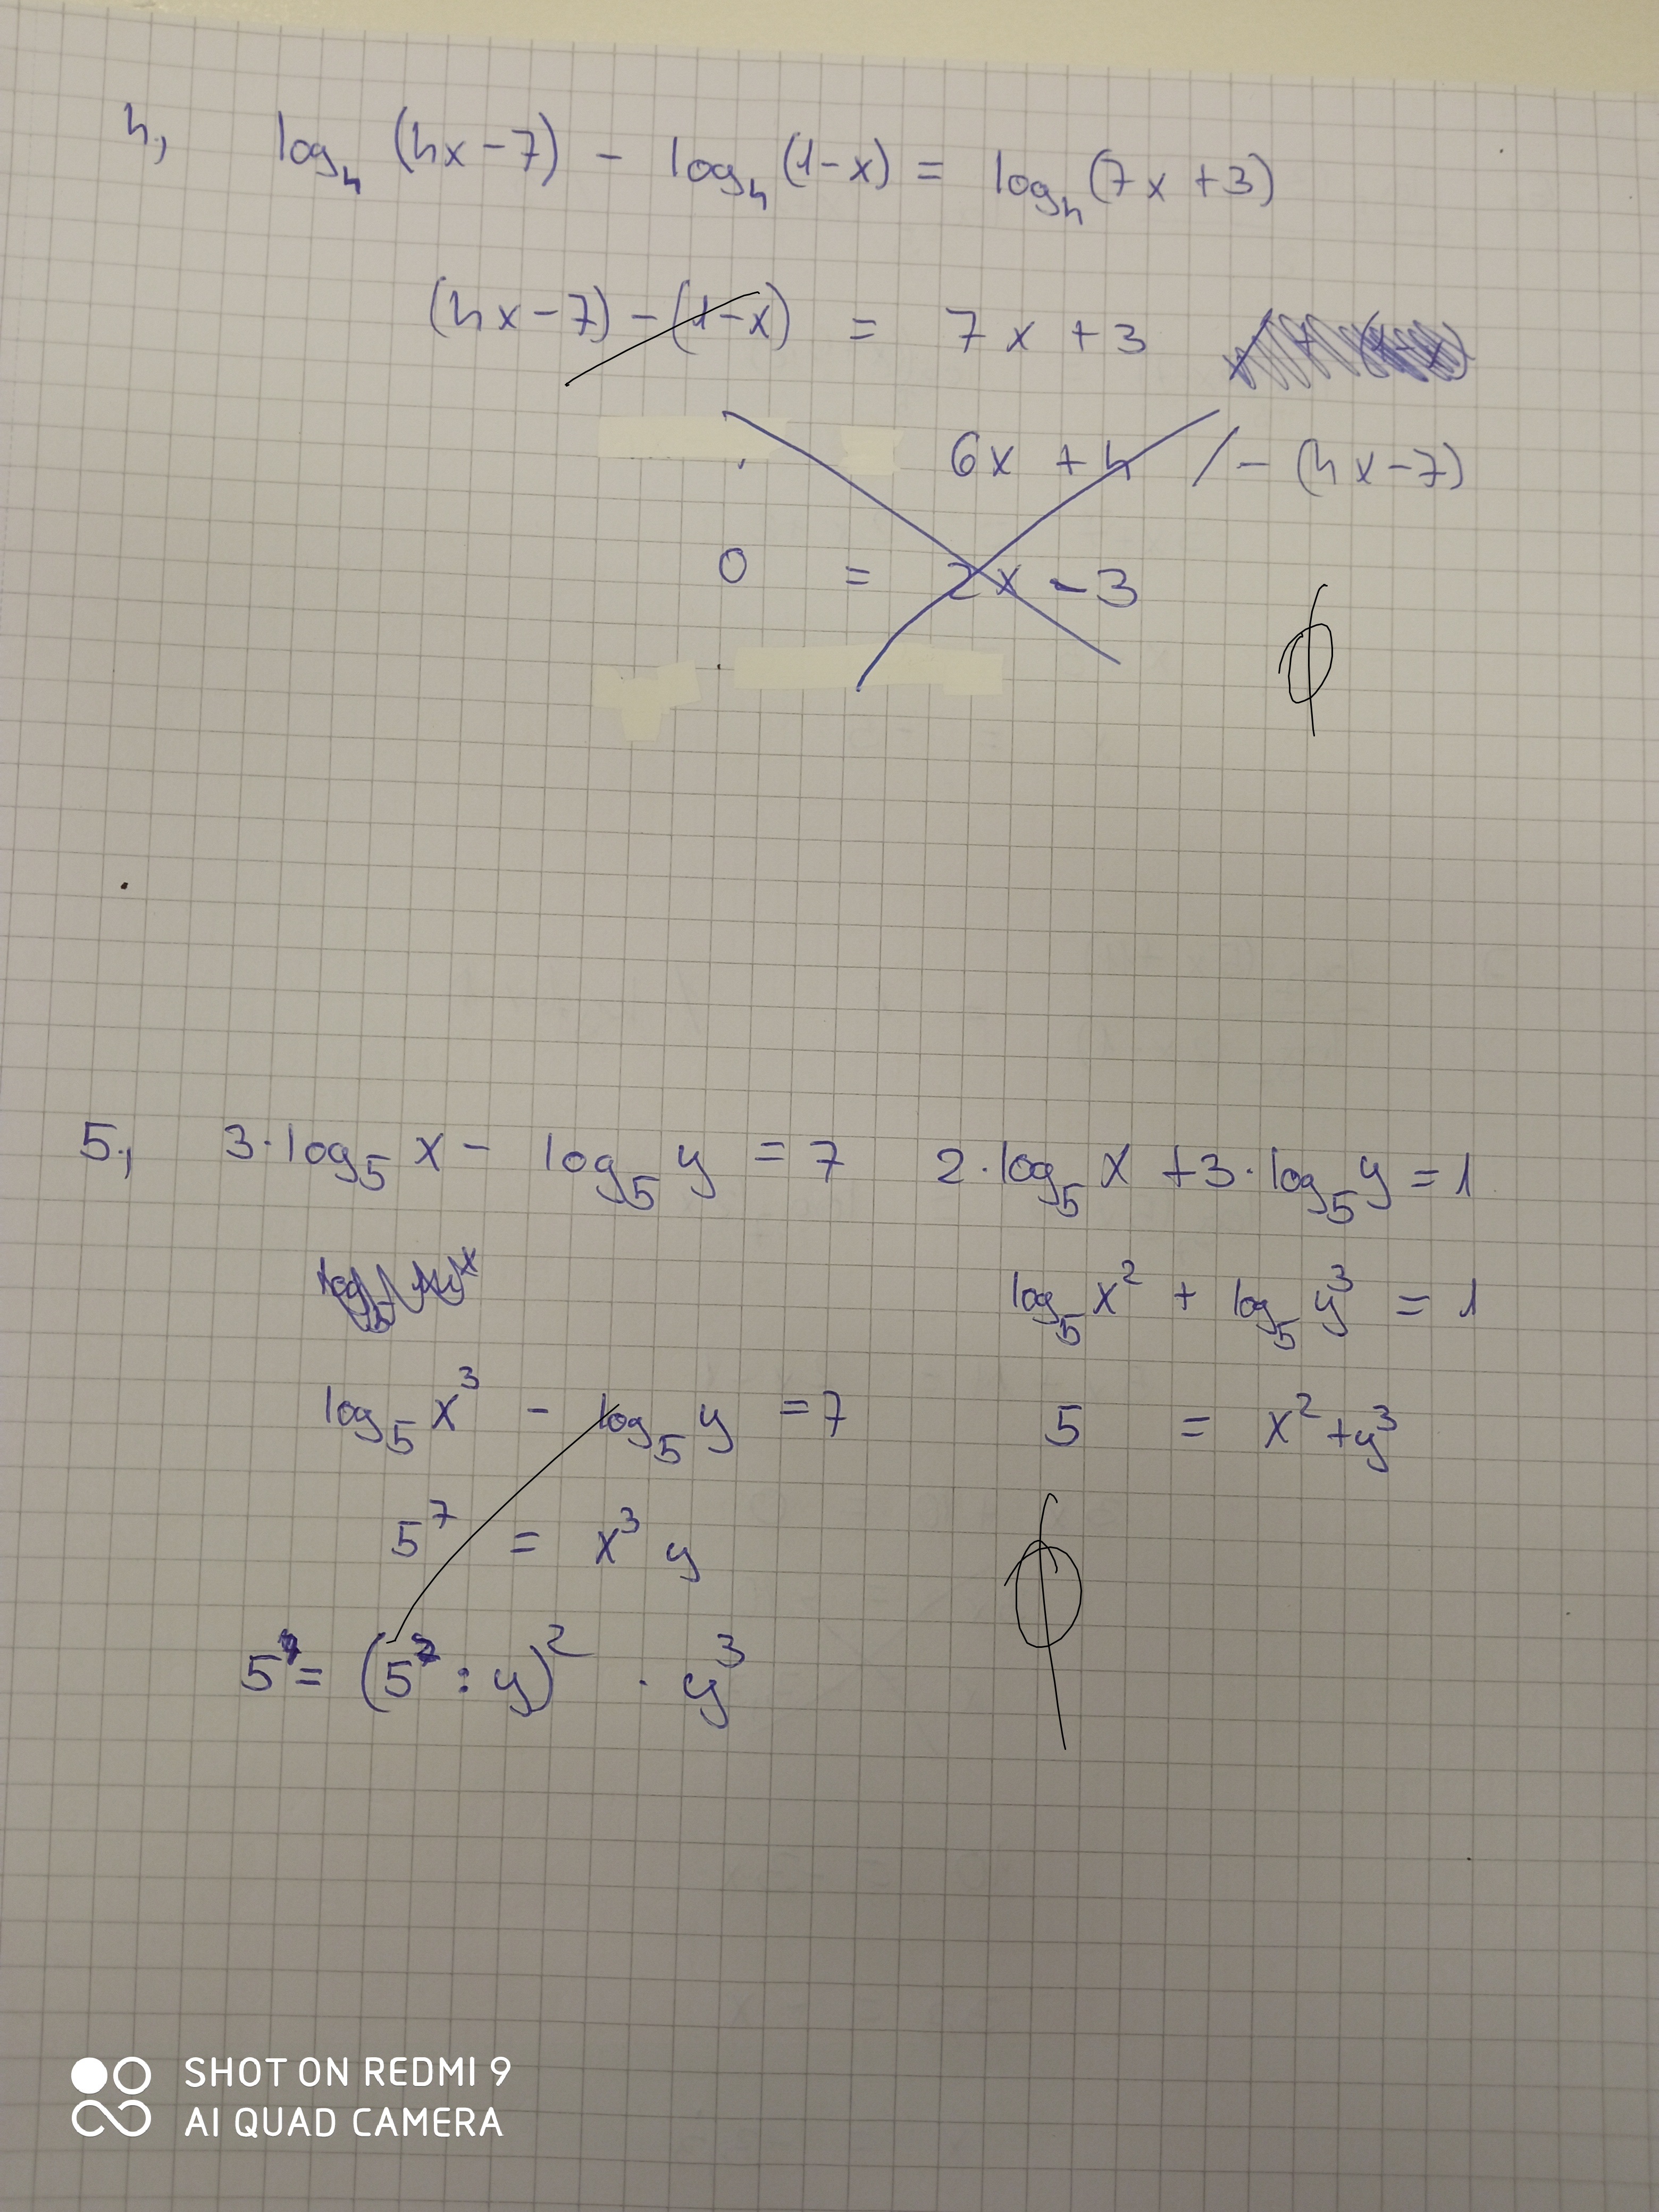 4., log₄ (4x-7) - log₄ (1-x) = log₄ (7x+3)
(4x-7) - (1-x) = 7x+3
6x + 4 /- (4x-7)
0 = 2x - 3
Ø
5., 3·log₅ x - log₅ y = 7 2·log₅ x + 3·log₅ y = 1
log₅ x² + log₅ y³ = 1
log₅ x³ - log₅ y = 7 5 = x² + y³
5⁷ = x³ y
Ø
5 = (5 : y)² · y³
SHOT ON REDMI 9
AI QUAD CAMERA